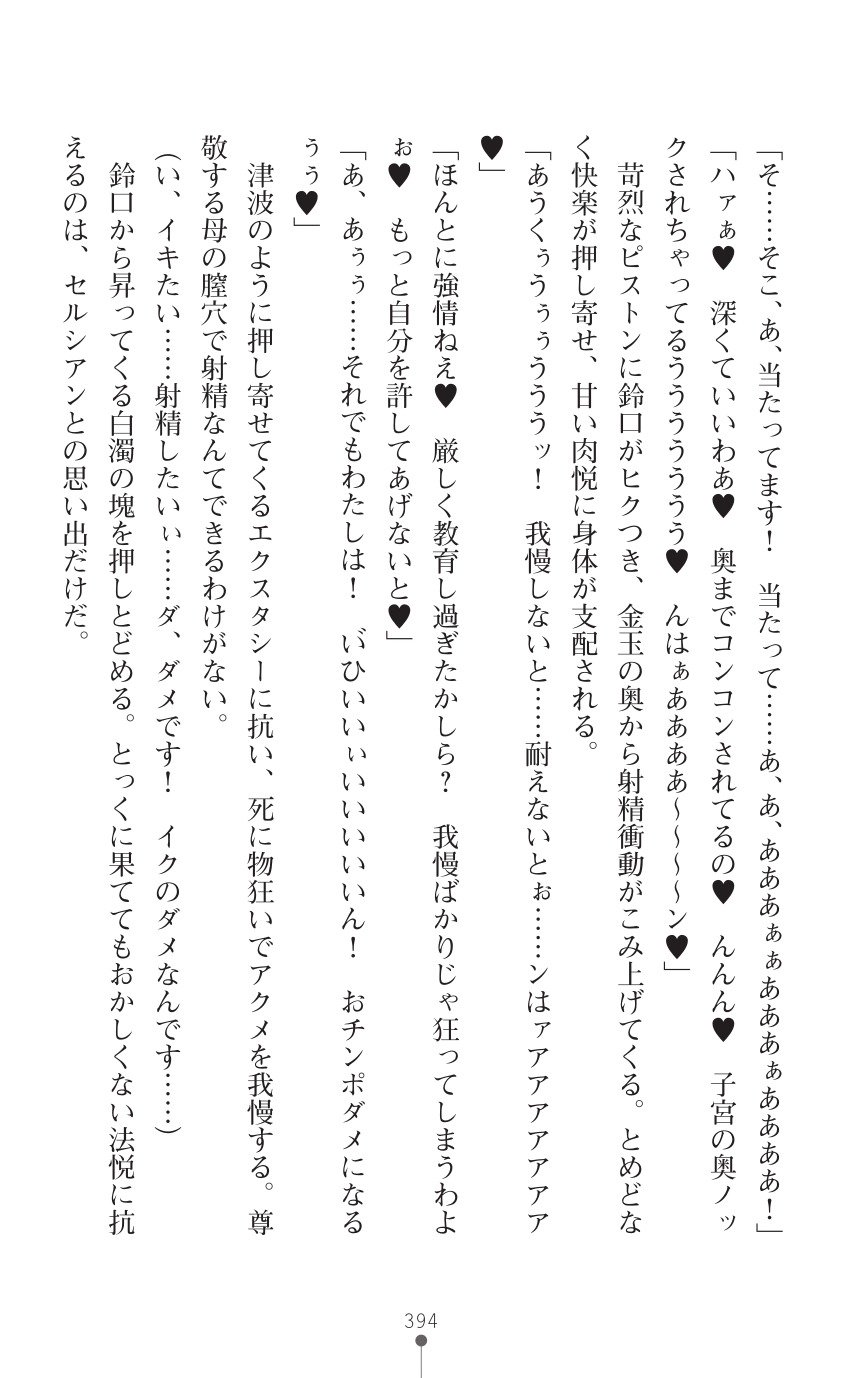 「そ……そこ、あ、当たってます！　当たって……あ、あ、あああぁぁあああぁあああああ！」
「ハァぁ♥　深くていいわあ♥　奥までコンコンされてるの♥　んんん♥　子宮の奥ノッ
クされちゃってるうううううう♥　んはぁああああ～～～～ン♥」
　苛烈なピストンに鈴口がヒクつき、金玉の奥から射精衝動がこみ上げてくる。とめどな
く快楽が押し寄せ、甘い肉悦に身体が支配される。
「あうくぅうぅぅうううッ！　我慢しないと……耐えないとぉ……ンはァアアアアアアア
♥」
「ほんとに強情ねえ♥　厳しく教育し過ぎたかしら？　我慢ばかりじゃ狂ってしまうわよ
ぉ♥　もっと自分を許してあげないと♥」
「あ、あぅぅ……それでもわたしは！　い゛ひいいぃいいいいいん！　おチンポダメになる
ぅぅ♥」
　津波のように押し寄せてくるエクスタシーに抗い、死に物狂いでアクメを我慢する。尊
敬する母の膣穴で射精なんてできるわけがない。
（い、イキたい……射精したいぃ……ダ、ダメです！　イクのダメなんです……）
　鈴口から昇ってくる白濁の塊を押しとどめる。とっくに果ててもおかしくない法悦に抗
えるのは、セルシアンとの思い出だけだ。
394